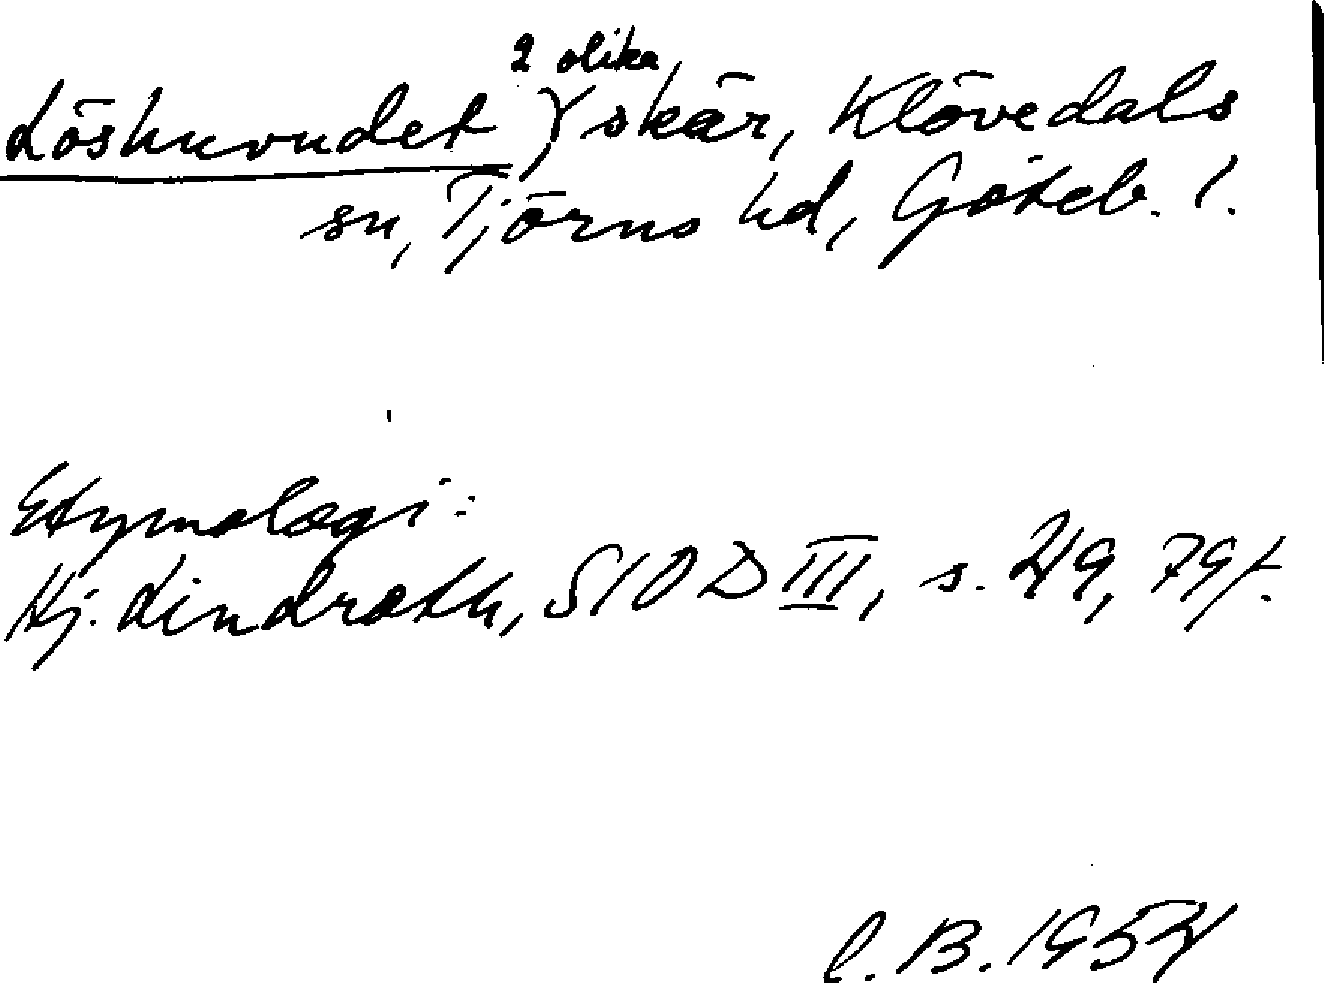 2 olika
Löshuvudet ) skär, Klövedals
sn, Tjörns hd, Göteb. l.
Etymologi:
Hj. Lindroth, SIOD III, s. 49, 79f.
C.B. 1954